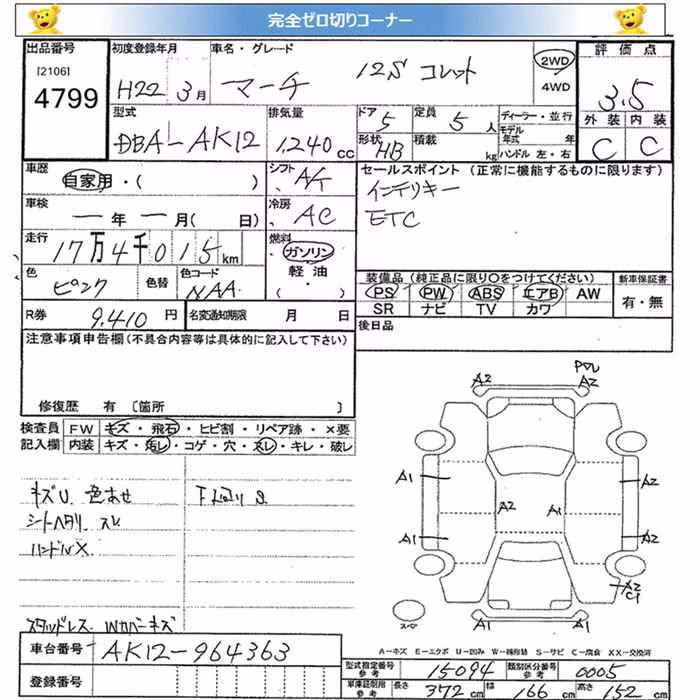 完全ゼロ切りコーナー
出品番号
[2106]
4799
初度登録年月
H22 3月
車名・グレード
マーチ 12S コレット
2WD
4WD
評価点
3.5
外装 内装
C C
型式
DBA-AK12
排気量
1,240 cc
ドア
5
形状
HB
定員
5 人
積載
kg
ディーラー・並行
モデル年式 年
ハンドル 左・右
車歴
自家用・( )
シフト
A/T
車検
ー 年 ー 月( 日)
冷房
AC
走行
17万4千015km
燃料
ガソリン
軽油
( )
色
ピンク
色替
色コード
NAA
R券
9,410 円
名変通知期限 月 日
セールスポイント (正常に機能するものに限ります)
インテリキー
ETC
装備品 (純正品に限り○をつけてください)
PS PW ABS エアB AW
SR ナビ TV カワ
新車保証書
有・無
後日品
注意事項申告欄(不具合内容等は具体的に記入して下さい)
修復歴 有〔箇所 〕
検査員記入欄
FW キズ・飛石・ヒビ割・リペア跡・×要
内装 キズ・汚レ・コゲ・穴・スレ・キレ・破レ
キズU 色あせ
シートヘタリ スレ
ハンドルX
下回りS
スタッドレス Wカバーキズ
A2
A2
A1
A1
A2
A1
A1
A2
A2
C1
A1
A1
スペア
A-キズ E-エクボ U-凹み W-補修跡 S-サビ C-腐食 XX-交換済
車台番号
AK12-964363
登録番号
型式指定番号 参考
15094
類別区分番号 参考
0005
車庫証明用 参考
長さ 372 cm
幅 166 cm
高さ 152 cm